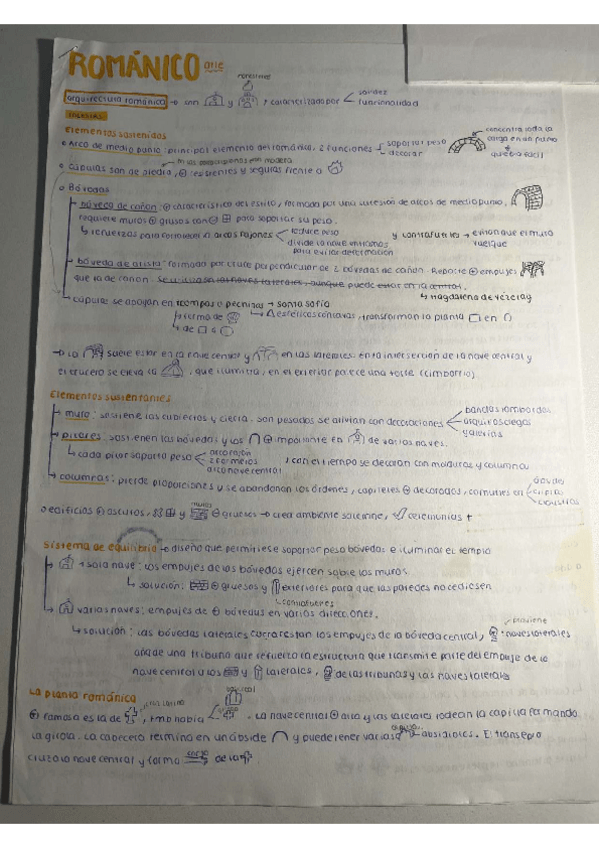 ROMÁNICO arte
monasterios
arquitectura románica → son y , caracterizado por solidez
funcionalidad
IGLESIAS
Elementos sostenidos
Arco de medio punto: principal elemento del románico, 2 funciones soportar peso
decorar
concentra toda la
carga en un punto
quiebra fácil
en las construcciones en madera
Cúpulas son de piedra, + resistentes y seguras frente a
Bóvedas
bóveda de cañón: + característico del estilo, formada por una sucesión de arcos de medio punto,
requiere muros + gruesos con para soportar su peso.
↳ refuerzos para contrarrestar arcos fajones reduce peso
divide la nave en tramos
para evitar deformación
y contrafuertes → evitan que el muro
vuelque
bóveda de arista: formada por cruce perpendicular de 2 bóvedas de cañón. Reparte + empujes
que la de cañón. Se utiliza en las naves laterales, aunque puede estar en la central.
↳ Magdalena de Vezelay
cúpulas se apoyan en trompas o pechinas → santa sofía
↳ forma de
↳ Δ esféricos cóncavos, transforman la planta □ en
↳ de □ a
→ La suele estar en la nave central y en las laterales. En la intersección de la nave central y
el crucero se eleva la , que ilumina, en el exterior parece una torre (cimborrio)
Elementos sustentantes
muro: sostiene las cubiertas y cierra. Son pesados se alivian con decoraciones bandas lombardas
arquitos ciegos
y galerías
pilares: sostienen las bóvedas y los ∩ + importante en de varias naves.
↳ cada pilar soporta peso arco fajón
2 formeros
arco nave central
, con el tiempo se decoran con molduras y columnas
columnas: pierde proporciones y se abandonan los órdenes, capiteles + decorados, comunes en
criptas
claustros
edificios + oscuros, y + gruesos → crea ambiente solemne, ceremonias +
muros
Sistema de equilibrio → diseño que permitiese soportar peso bóvedas e iluminar el templo
1 sola nave: los empujes de las bóvedas ejercen sobre los muros.
↳ solución: + gruesos y exteriores para que las paredes no cediesen
↳ contrafuertes
varias naves: empujes de bóvedas en varias direcciones.
↳ solución: las bóvedas laterales contrarrestan los empujes de la bóveda central, naves laterales
añade una tribuna que refuerza la estructura que transmite parte del empuje de la
nave central a los y laterales, de las tribunas y las naves laterales
La planta románica
cruz latina
+ famosa es la de , tmb había . La nave central + alta y las laterales rodean la capilla formando
la girola. La cabecera termina en un ábside ∩ y puede tener varios absidiolos. El transepto
cruza la nave central y forma de la